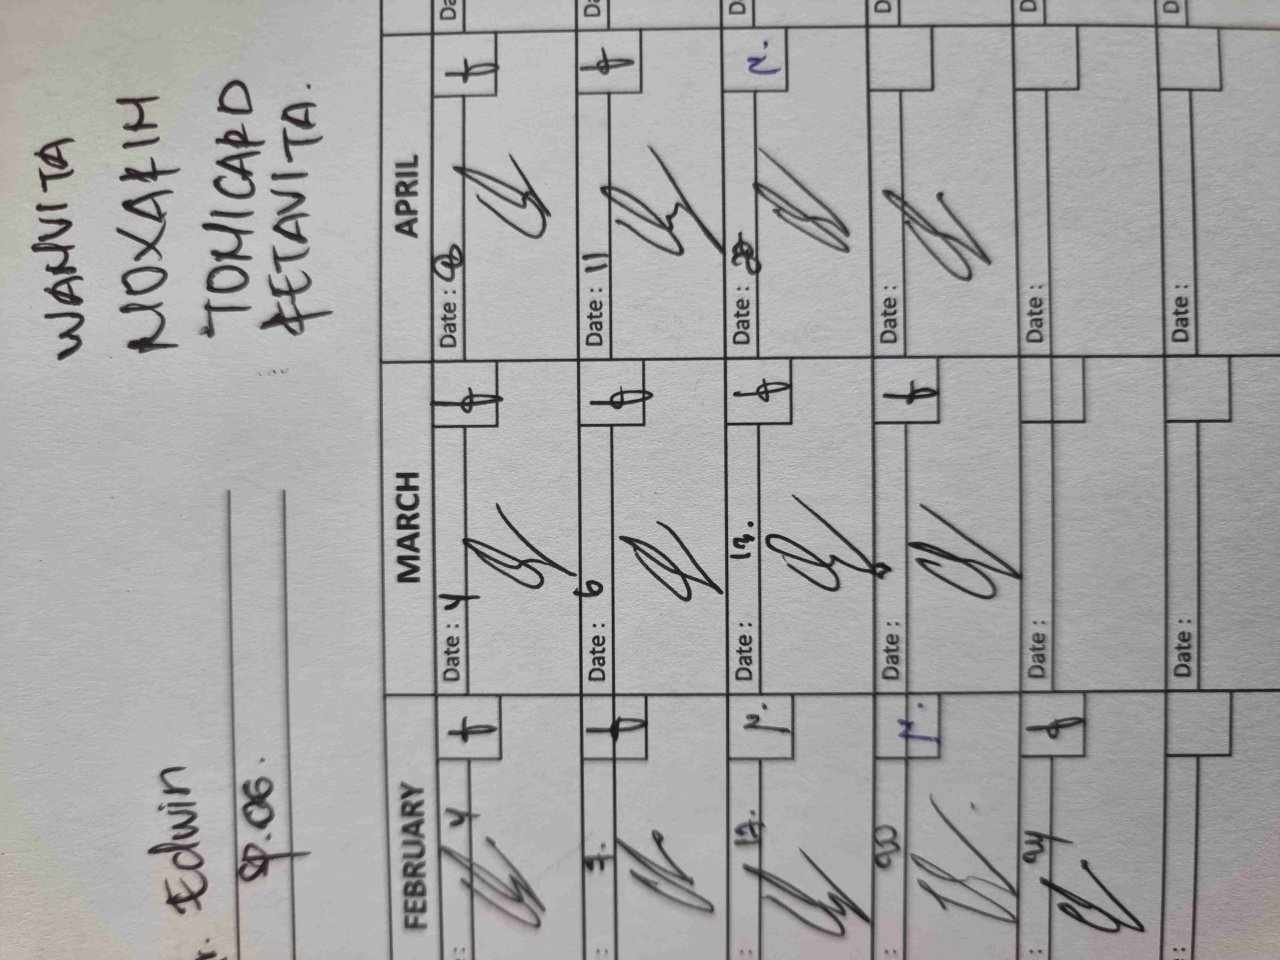 Edwin
SP.OG.
WANVITA
NOXAFIN
TOMICARD
FETAVITA.
FEBRUARY MARCH APRIL
4 Date : 4 Date : 8
7. Date : 6 Date : 11
12. Date : 13. Date :
20 Date : Date :
24 Date : Date :
Date : Date :